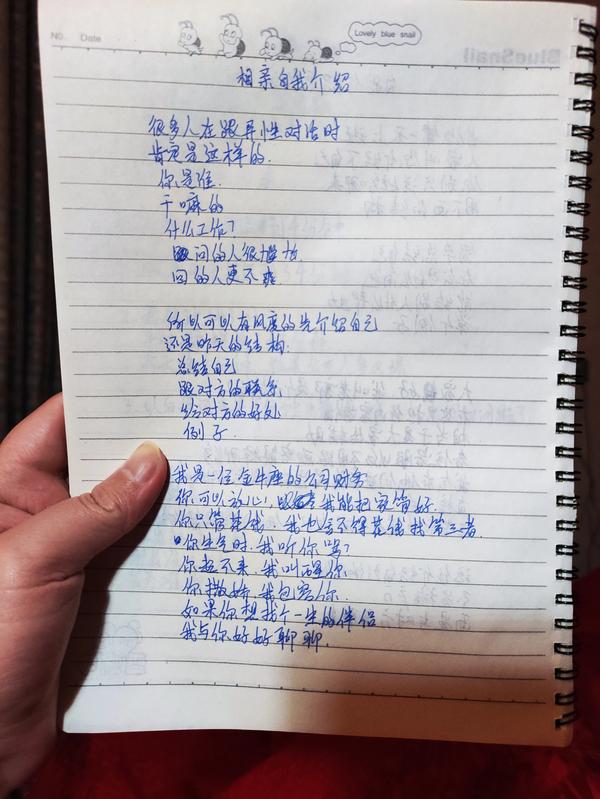 NO.
Date
Lovely blue snail
BlueSnail
相亲自我介绍
很多人在跟异性对话时
肯定是这样的.
你是谁.
干嘛的
什么工作?
问的人很尴尬
回的人更不爽
所以可以有风度的先介绍自己
还是昨天的结构:
总结自己
跟对方的联系
给对方的好处
例子.
我是一位金牛座的公司财务
你可以放心,我能把家管好.
你只管花钱 我也舍不得花钱找第三者.
你生气时,我听你骂?
你起不来,我叫醒你
你撒娇,我包容你.
如果你想找个一生的伴侣
我与你好好聊聊.
NO.
Date